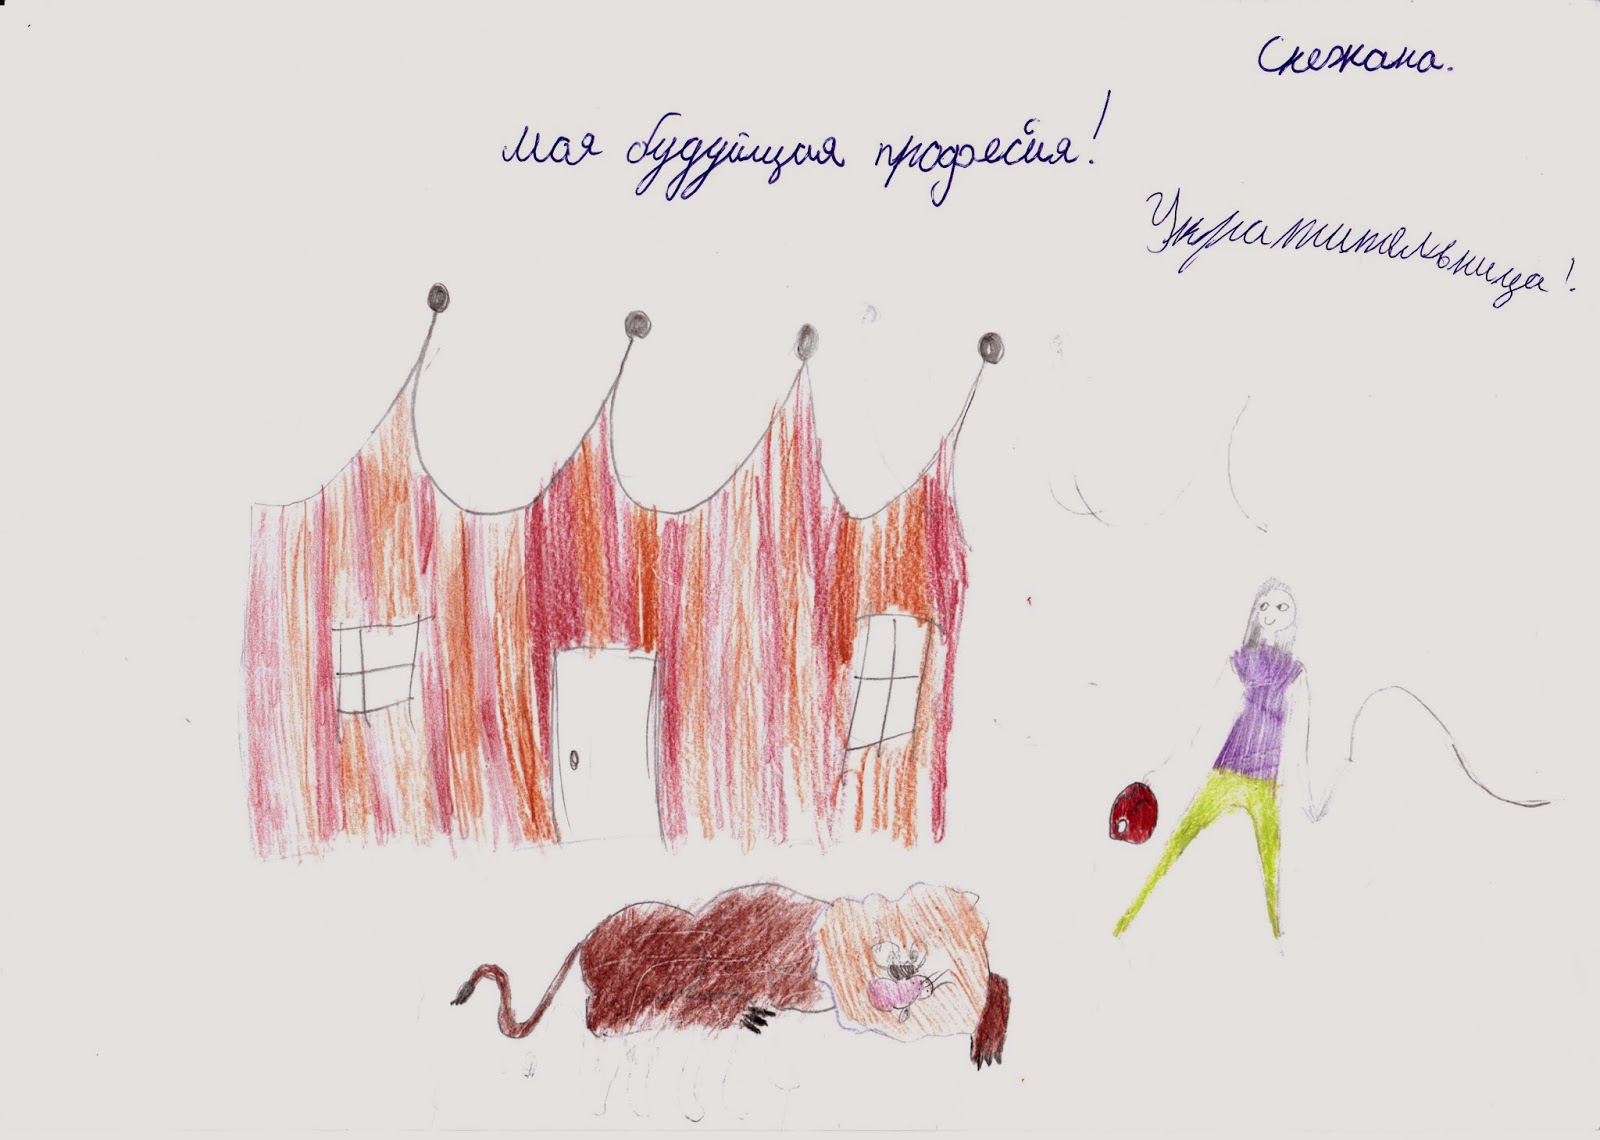 Снежана.
мая будуйщая професия!
Укратительница!